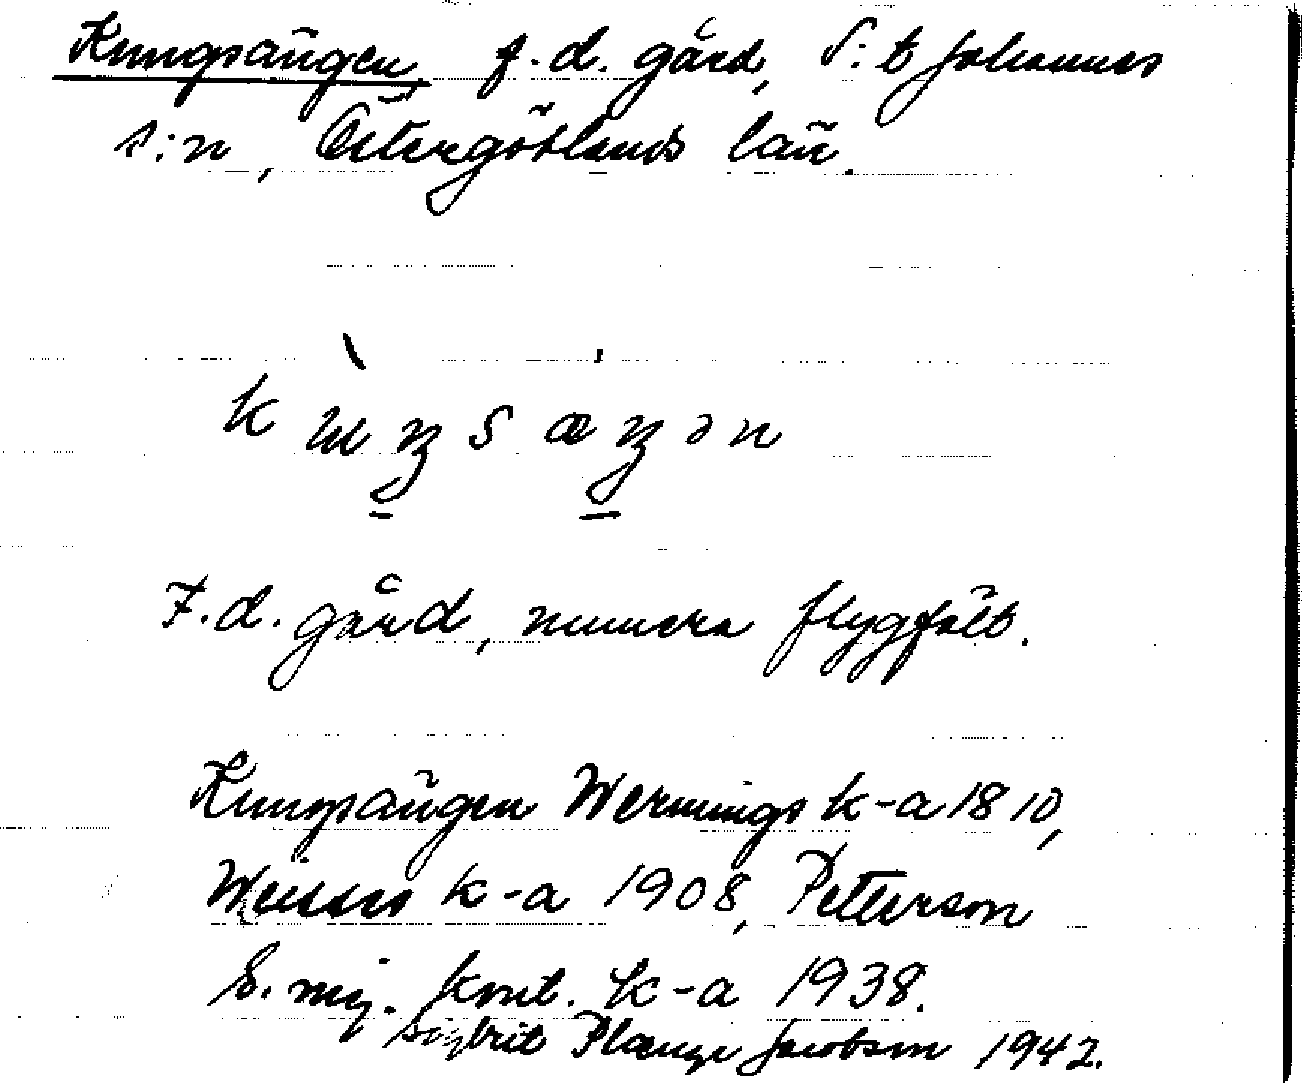 Kungsängen, f.d. gård, S:t Johannes
s:n, Östergötlands län.
k ɯ̀ŋsæŋən
F.d. gård, numera flygfält.
Kungsängen Wernings k-a 1810,
k-a 1908, Petterson
S. mj. kont. k-a 1938.
Sigbrit Plænge Jacobson 1942.